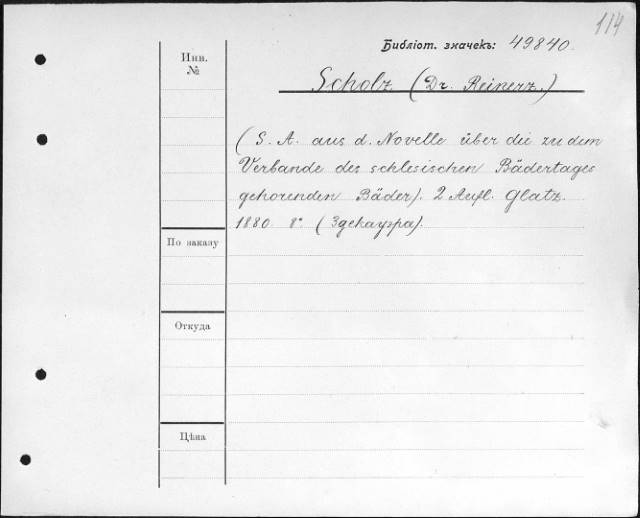 114
Библіот. значекъ: 49840.
Инв.
№
Scholz (Dr. Reinerz.)
(S. A. aus d. Novelle über die zu dem
Verbande des schlesischen Bädertages
gehorenden Bäder). 2 Aufl. Glatz.
1880. 8°. (3 декаура).
По заказу
Откуда
Цѣна